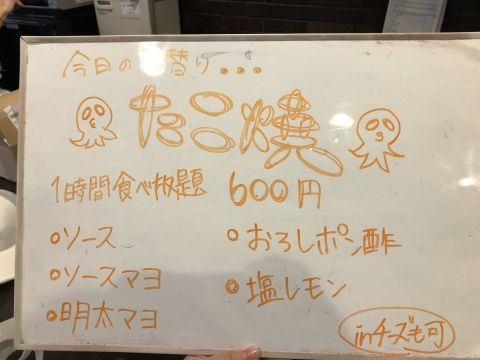 今日の日替り...
たこ焼
1時間食べ放題 600円
•ソース
•ソースマヨ
•明太マヨ
•おろしポン酢
•塩レモン
inチーズも可